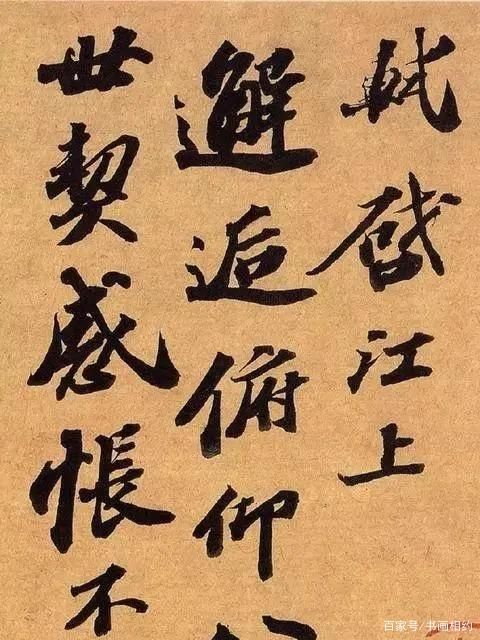 軾啓江上
邂逅俯仰八
世契感悵不
百家号/书画相约